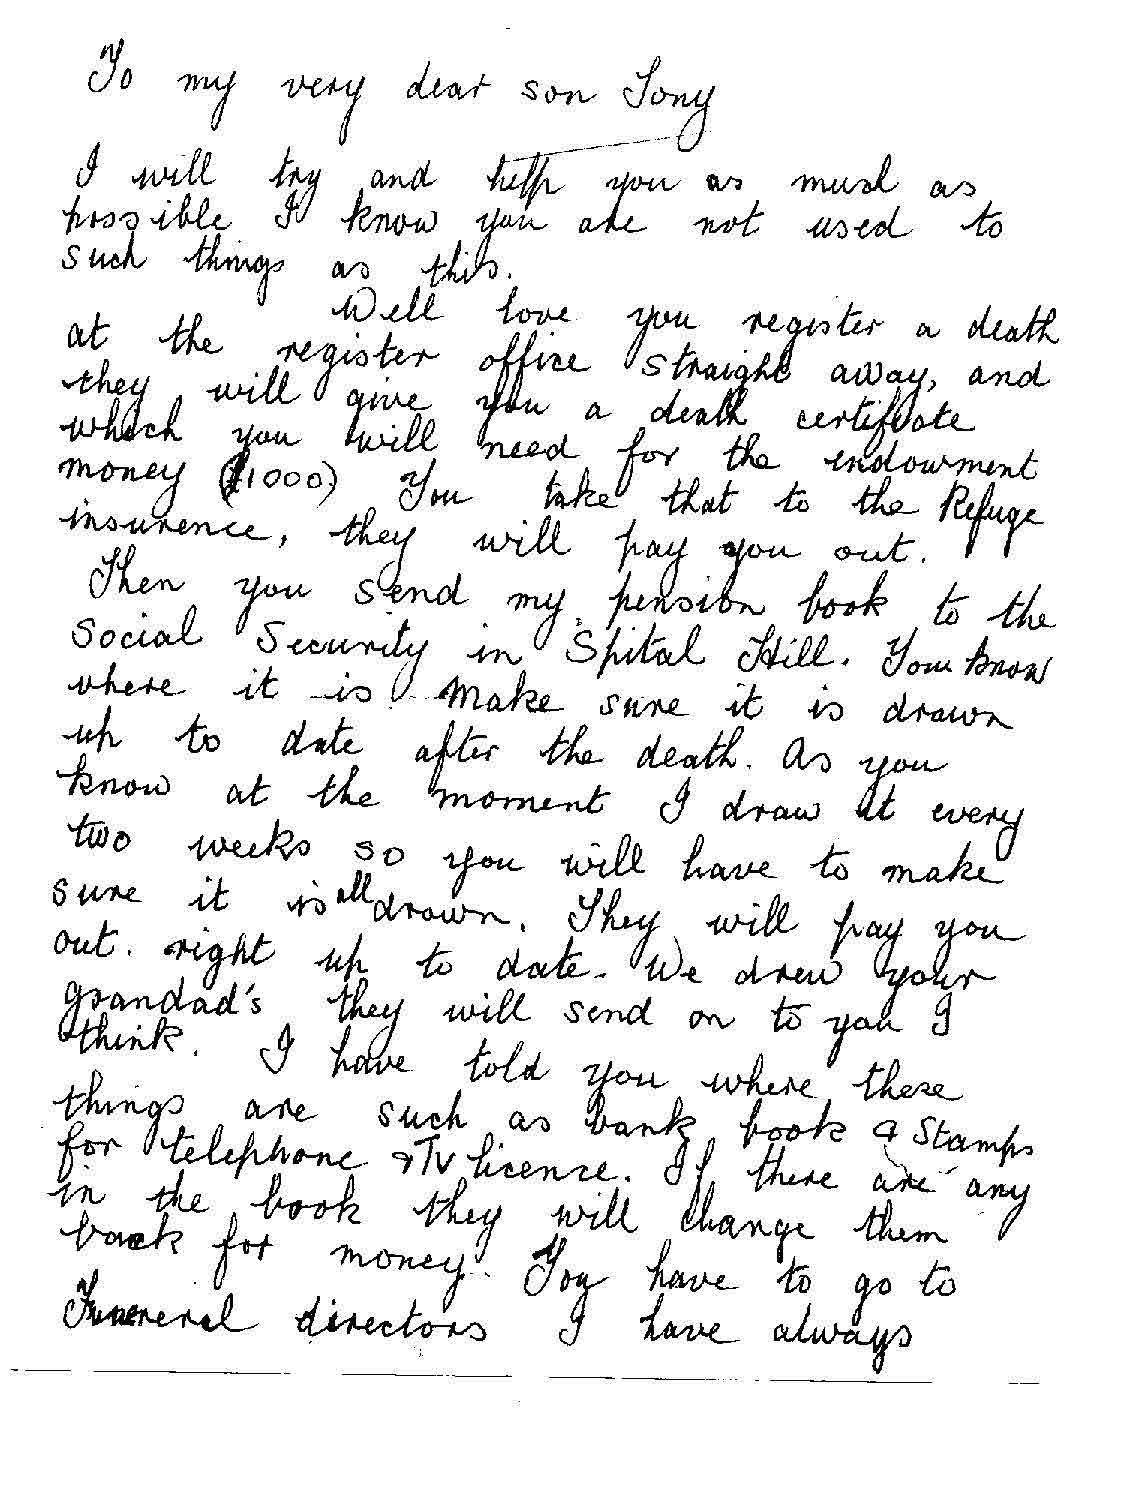 To my very dear son Tony
I will try and help you as much as
possible I know you are not used to
such things as this.
Well love you register a death
at the register office straight away, and
they will give you a death certificate
which you will need for the endowment
money (£1000) You take that to the Refuge
insurence, they will pay you out.
Then you send my pension book to the
Social Security in Spital Hill. You know
where it is make sure it is drawn
up to date after the death. As you
know at the moment I draw it every
two weeks so you will have to make
sure it is all drawn. They will pay you
out. right up to date. We drew your
grandad's they will send on to you I
think. I have told you where these
things are such as bank book & Stamps
for telephone & TV license. If there are any
in the book they will change them
back for money. You have to go to
Funereral directors I have always